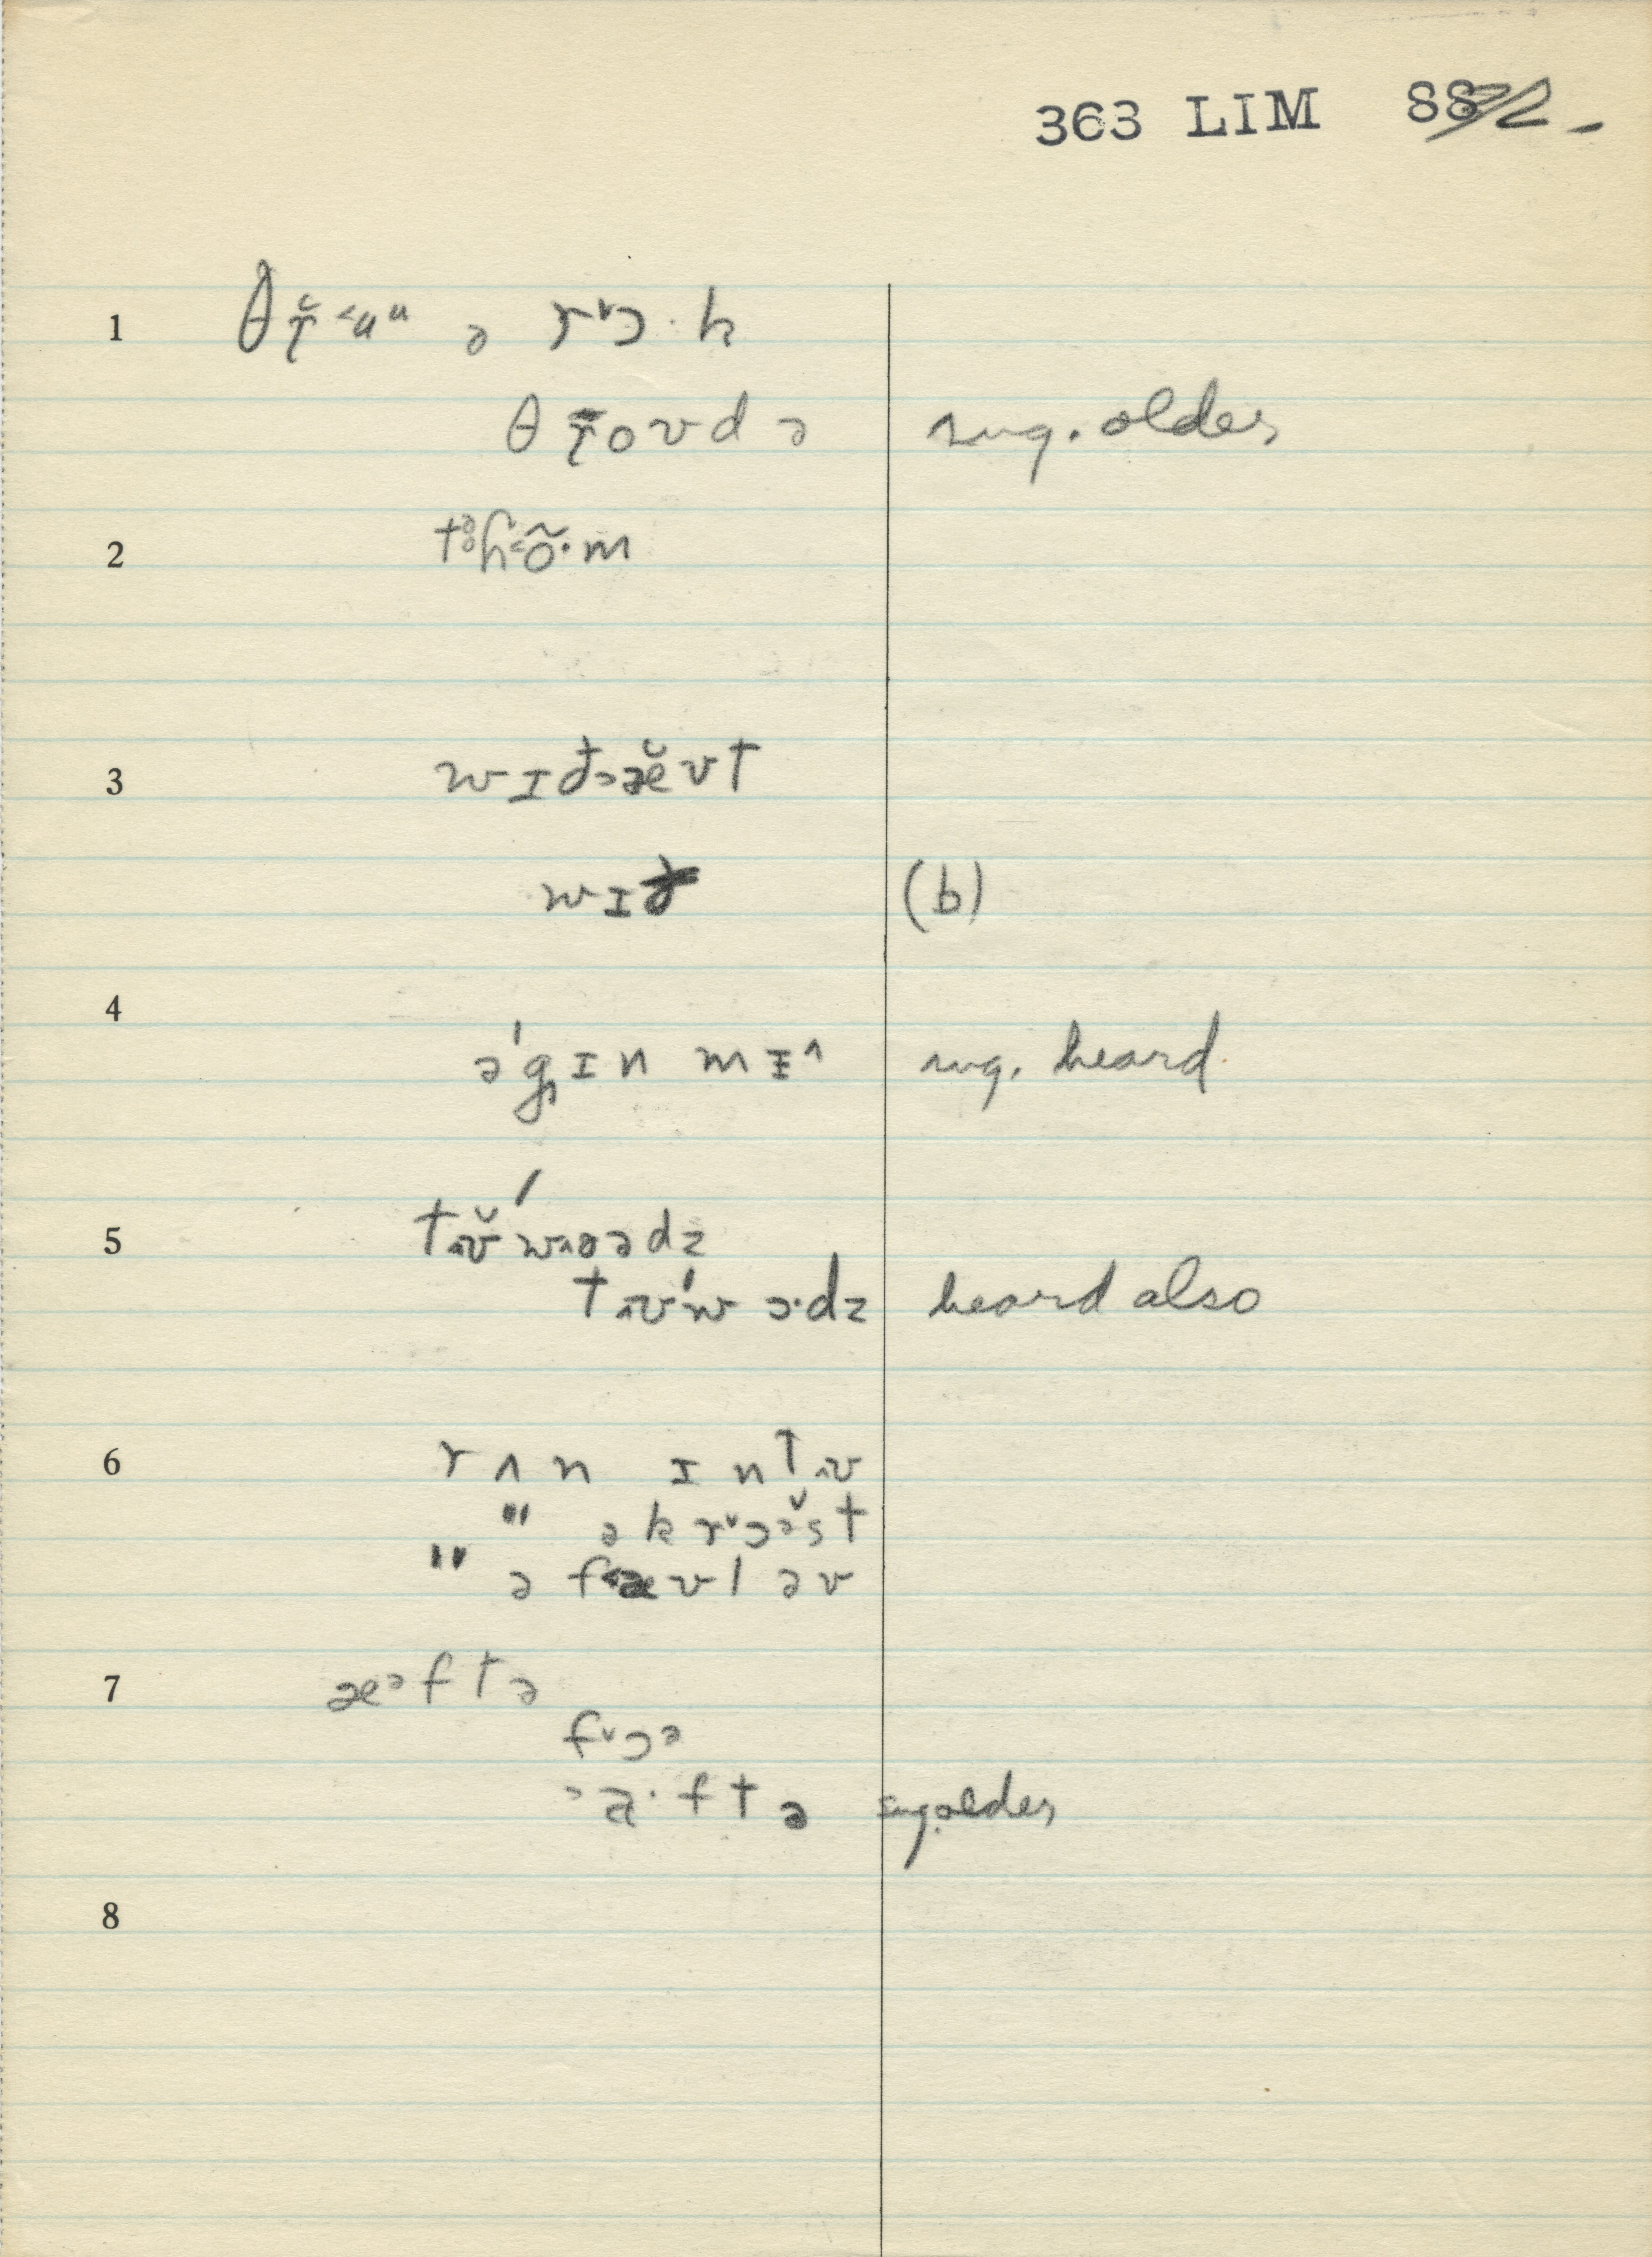 363 LIM 882-
1 θř<uᵘ ə r˅ɔ·k
θr̆oʊdə sug. older
2 tə̥ɦ<õ·m
3 wɪð>æ̆ʊt
wɪð (b)
4 ə'gɪn mɪ^ sug. heard.
5 tʊ̆'w^ɵədz
tʊ'wɔ·dz heard also
6 rʌn ɪntʊ
" əkr˅ɔə̆st
" ə f<æʊl əv
7 æəftə
f˅ɔə
>a·ftə sug. older
8